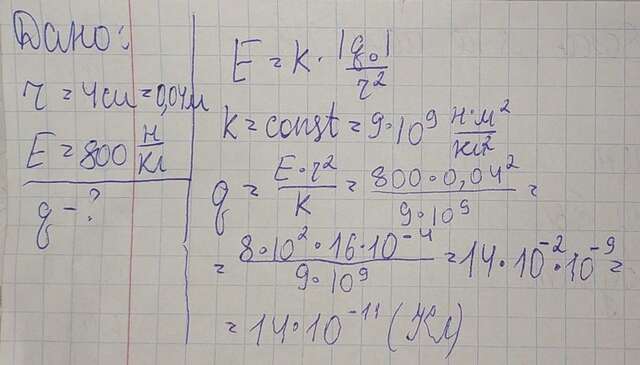 Дано:
r = 4см = 0,04м
E = 800 Н/Кл
q - ?
E = k · |q₀|/r²
k = const = 9·10⁹ Н·м²/Кл²
q = E·r²/k = 800·0,04²/9·10⁹ =
= 8·10²·16·10⁻⁴/9·10⁹ = 14·10⁻²·10⁻⁹ =
= 14·10⁻¹¹ (Кл)